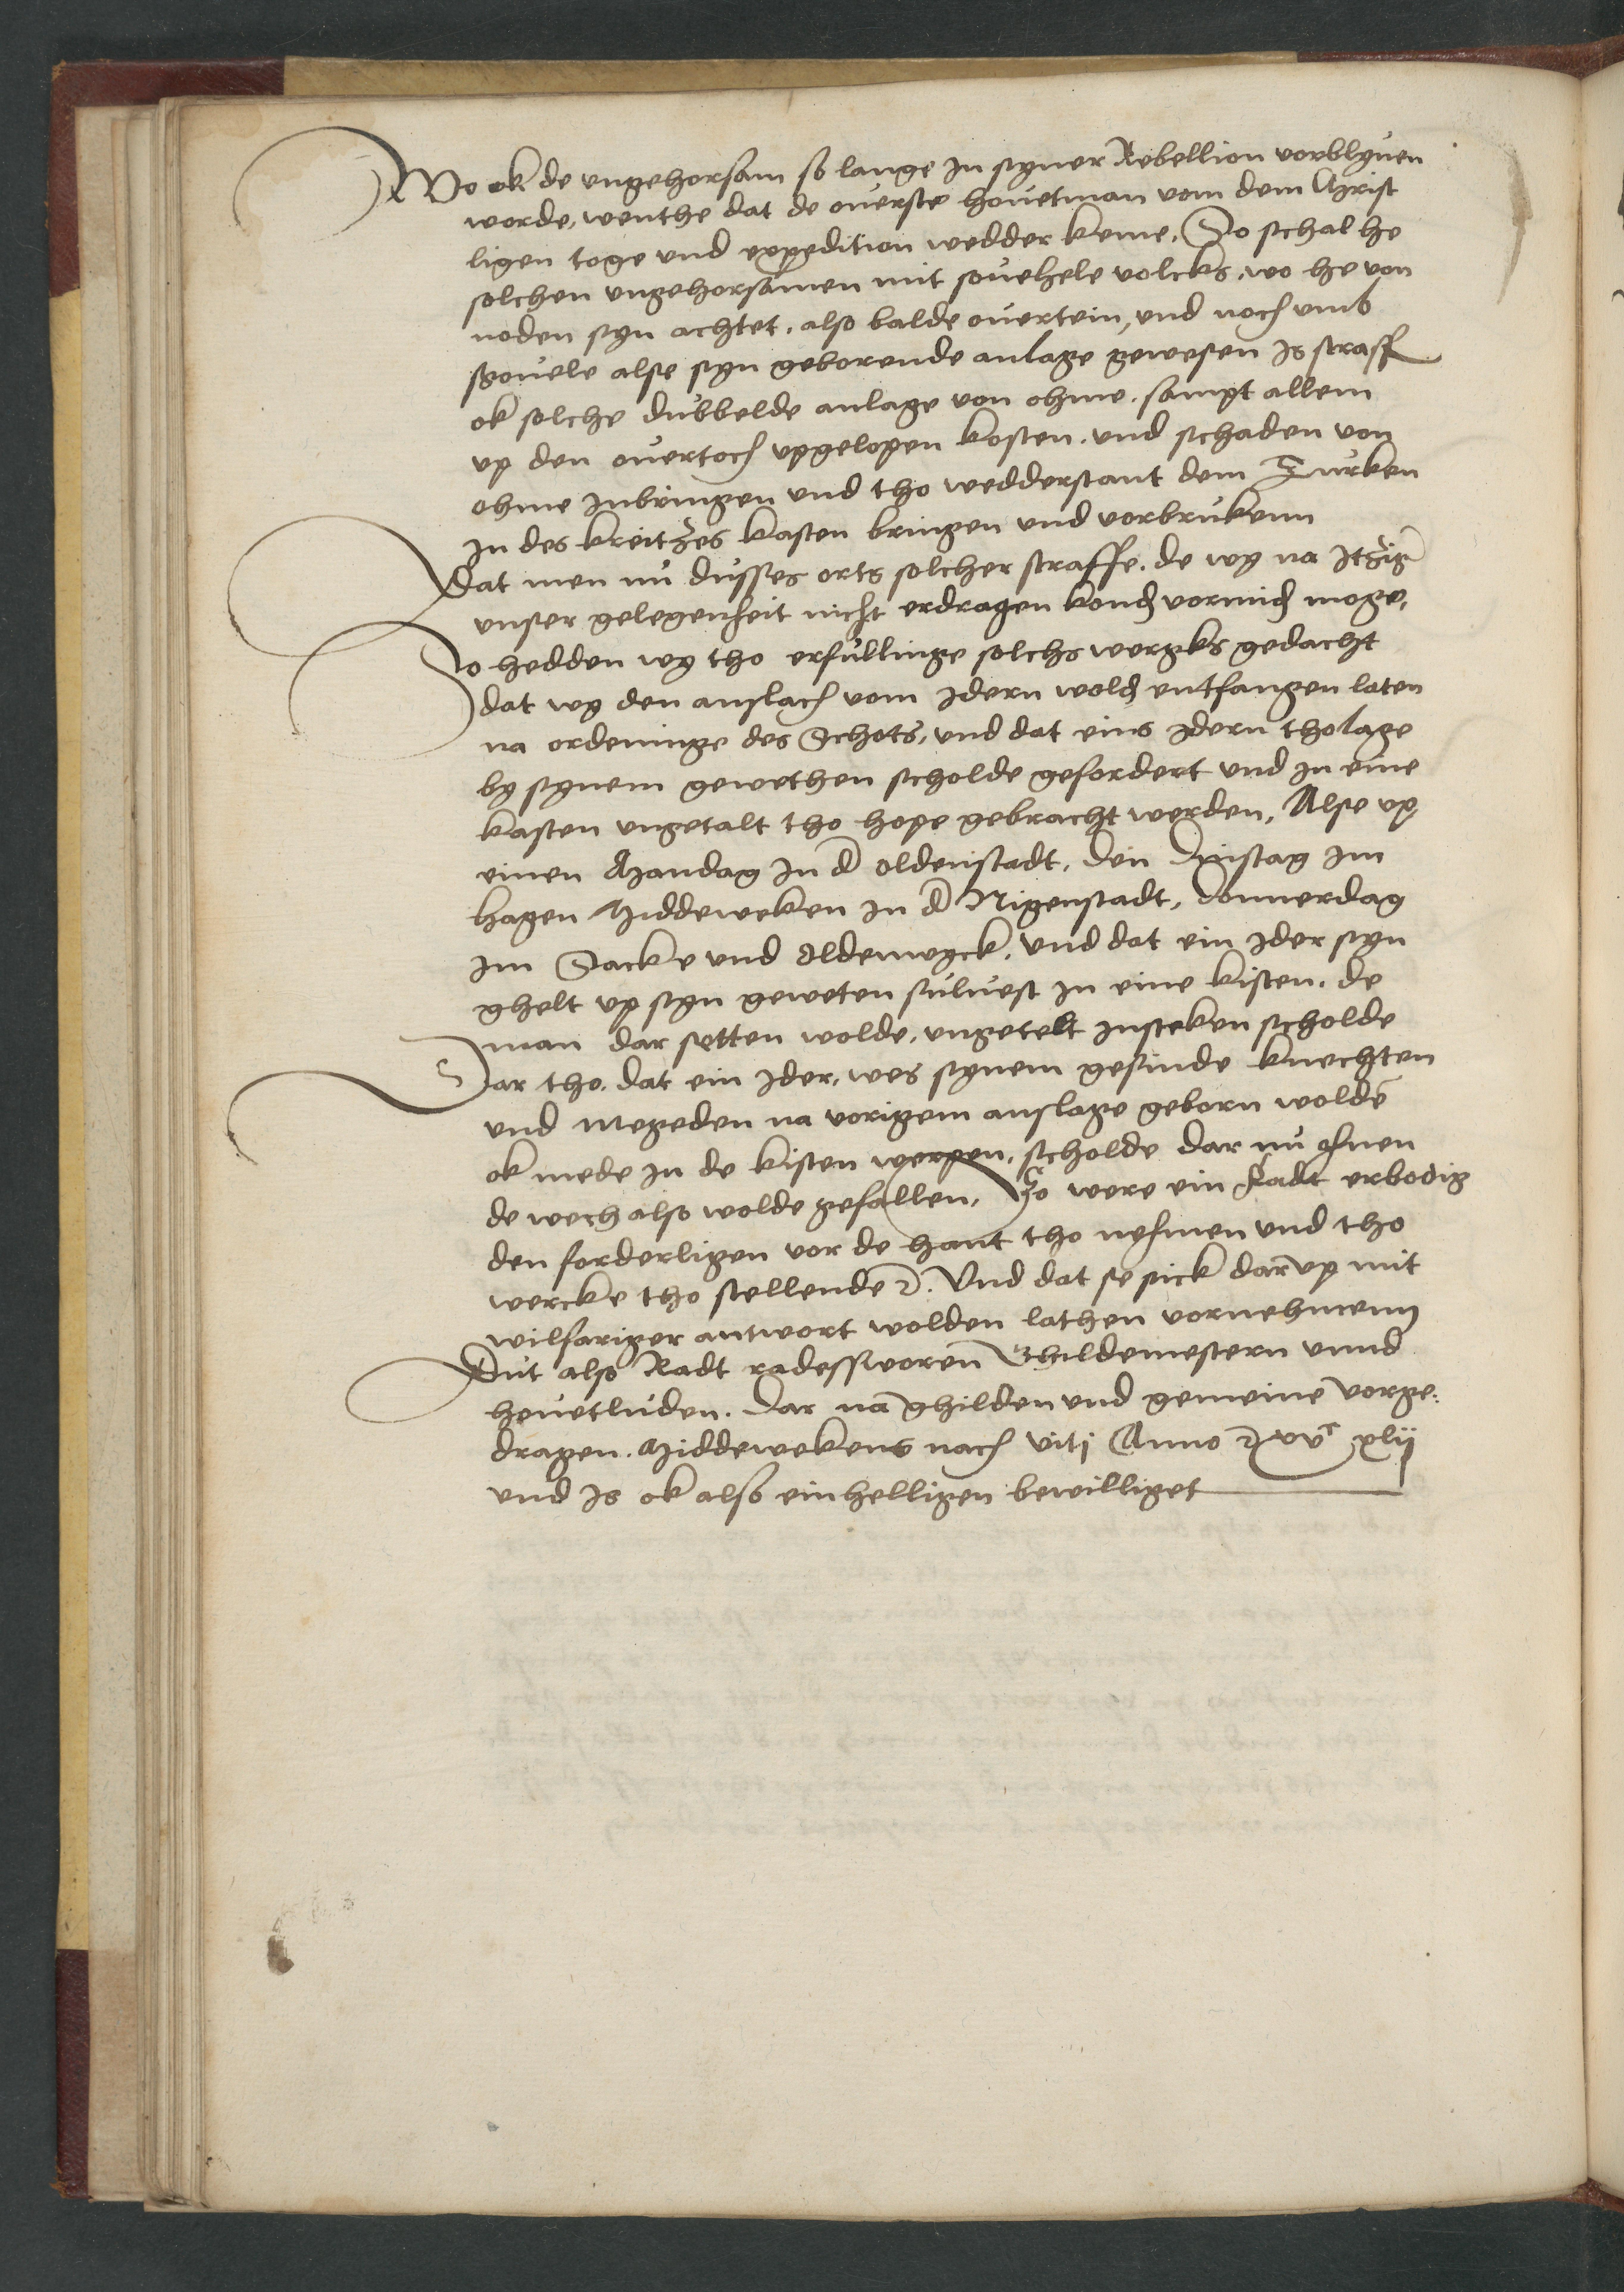 Wo ok de ungehorsam so lange Jn syner Rebellion vorblyuen
worde, wenthe dat de ouerste houetman vom dem Christ
ligen toge und expedition wedder keme, So schal he
solchen ungehorsamen mit souehele volcks, wo he von
noden syn achtet, also balde ouertein, und noch umb
souele alse syn geborende anlage gewesen Js straff
ok solche dubbelde anlage von ohme, sampt allem
up den ouertoch upgelopen kosten, und schaden von
ohme Jnbringen und tho wedderstant dem Turken
Jn des kreitzes kasten bringen und vorbrukenn
Dat men nu dusses orts solcher straffe, de wy na Jtzig
unser gelegenheit nicht erdragen kond vormid moge,
So hedden wy tho erfullinge solchs wergks gedacht
dat wy den anslach vom Jdern wold entfangen laten
na ordeninge des Schots, und dat eins Jdern tholage
by synem gewethen scholde gefordert und Jn eine
kasten ungetalt tho hope gebracht werden, Alse up
einen Mandag Jn d Oldenstadt, den Dinstag Jm
hagen Middeweken Jn d Nigenstadt, Donnerdag
Jm Sacke und Oldewyck, Und dat ein Jder syn
ghelt up syn geweten sulvest Jn eine kisten, de
man dar setten wolde, ungetelt Jnsteken scholde
Dar tho, dat ein Jder, wes synem gesinde knechten
und megeden na vorigem anslage geborn wolde
ok mede Jn de kisten werpen, scholde dar nu ohnen
de wech also wolde gefallen, So were ein Radt erbodig
den forderligen vor de hant tho nehmen und tho
wercke tho stellende ꝛc. Und dat se sick darup mit
wilfariger antwort wolden lathen vornehmenn
Dut also Radt radessworen Ghildemestern unnd
houetluden. Dar na ghilden und gemeine vorge:
dragen. Middewekens nach Viti Anno ꝛc xvᶜ xlij
und Js ok also einhelligen bewilliget